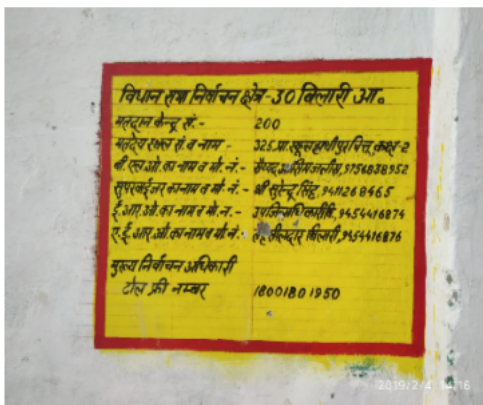 विधान सभा निर्वाचन क्षेत्र-30 बिलारी उ०
मतदान केन्द्र सं.- 200
मतदेय स्थल सं. व नाम - 325, प्रा. स्कूल हाथीपुर चित्तू कक्ष-2
बी. एल. ओ. का नाम व मो. नं. - सैय्यद आसिम जलीस, 9756838952
सुपरवाईजर का नाम व मो. नं. - श्री सुरेन्द्र सिंह, 9411268465
ई. आर. ओ. का नाम व मो. नं. - उपजिलाधिकारी, 9454416874
ए. ई. आर. ओ. का नाम व मो. नं. - तहसीलदार बिलारी, 9454416876
मुख्य निर्वाचन अधिकारी
टोल फ्री नम्बर 18001801950
2019/2/4 14:16